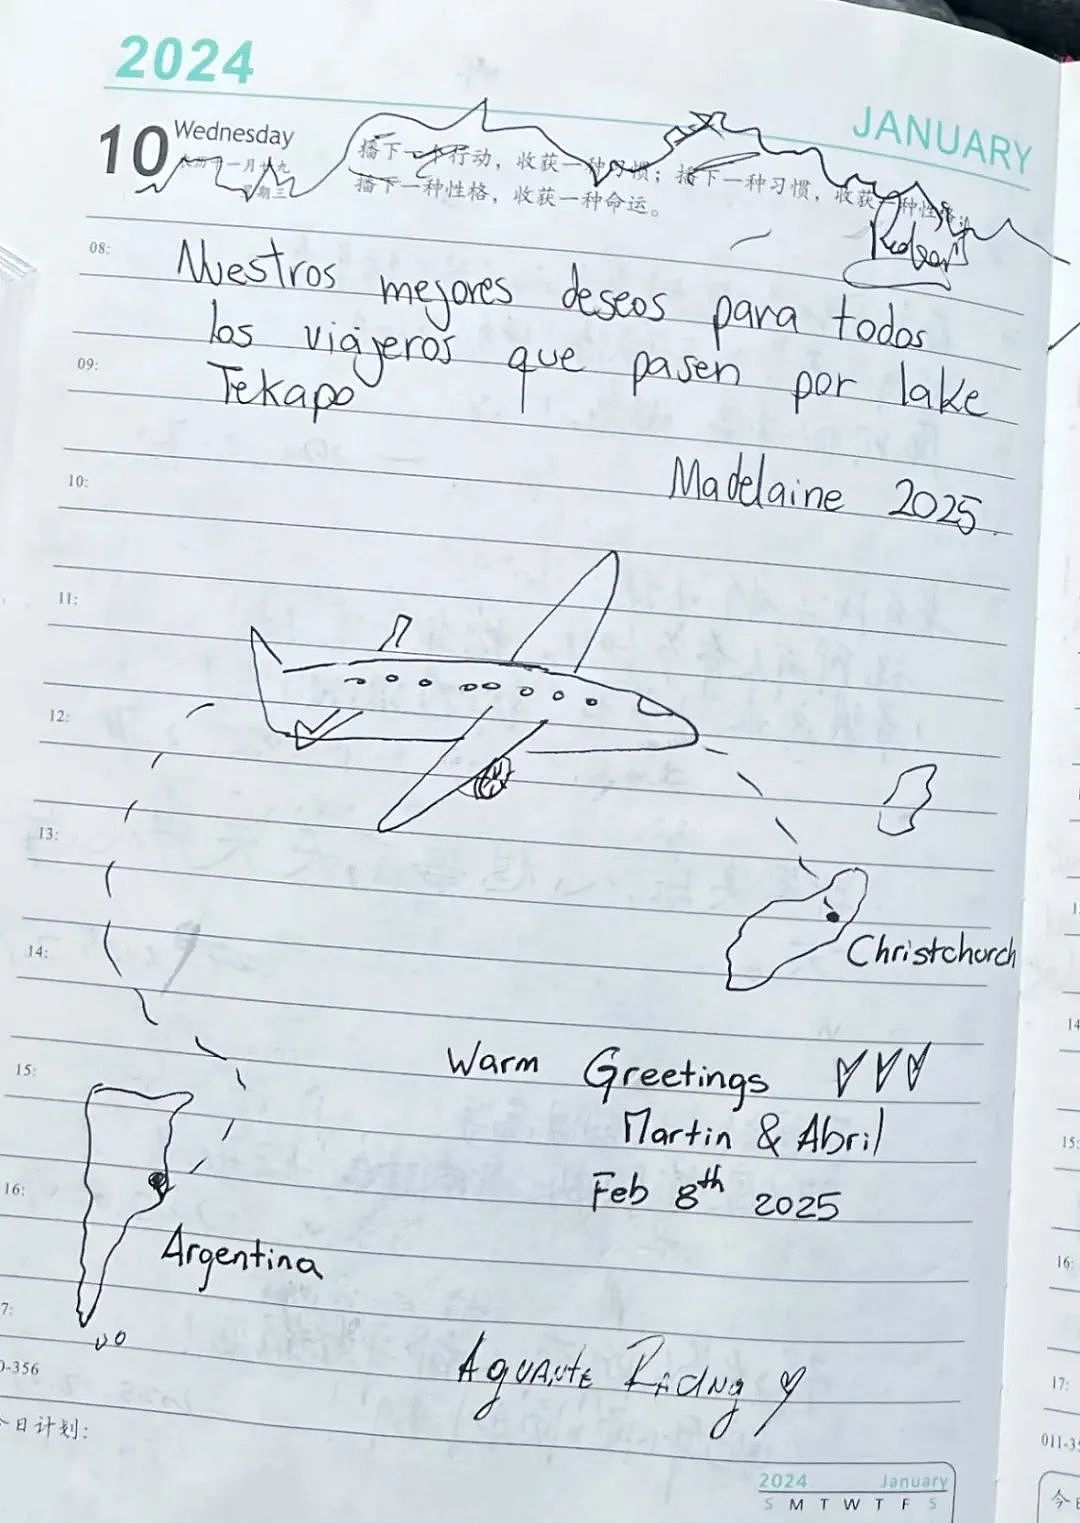 2024
JANUARY
10 Wednesday
播下一个行动，收获一种习惯；播下一种习惯，收获一种性格；
星期三
播下一种性格，收获一种命运。
08:
Nuestros mejores deseos para todos
los viajeros que pasen por lake
09:
Tekapo
Madelaine 2025
10:
11:
12:
13:
Christchurch
14:
Warm Greetings
15:
Martin & Abril
Feb 8th 2025
16:
Argentina
7:
0-356
今日计划:
2024 January
S M T W T F S
14
15:
16:
17:
011-35
今